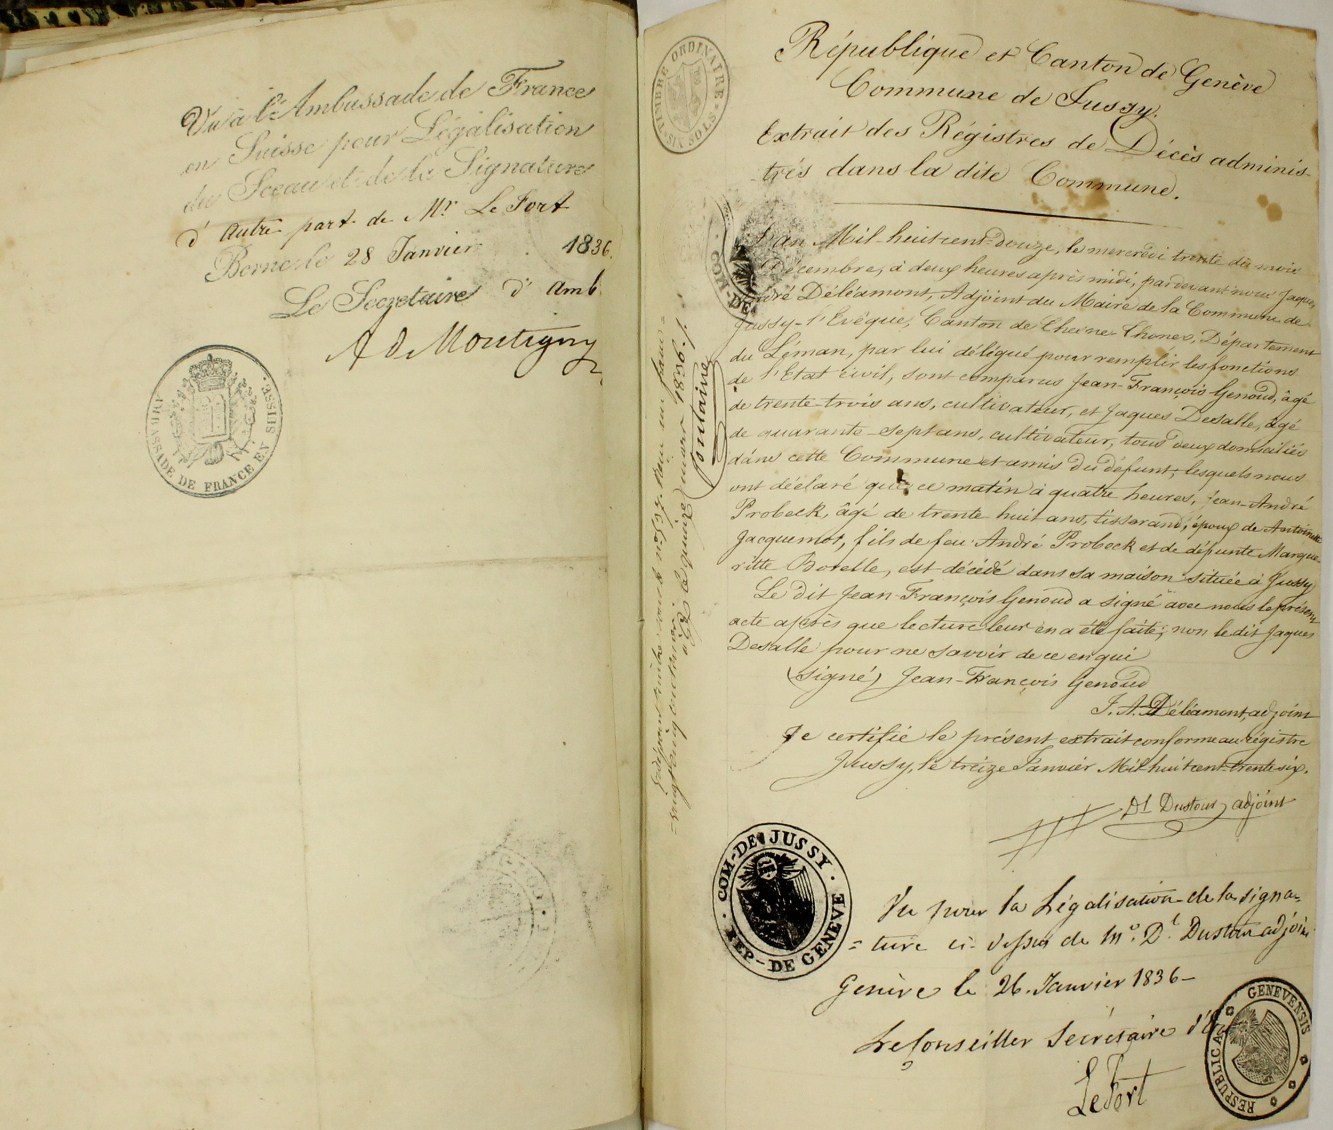 Vu à l'Ambassade de France
en Suisse pour Légalisation
du Sceau et de la Signature
d'autre part de Mr Le Fort
Berne le 28 Janvier 1836.
Le Secrétaire d'Amb
A de Montigny
AMBASSADE DE FRANCE EN SUISSE
TIMBRE ORDINAIRE
République et Canton de Genève
Commune de Jussy.
Extrait des Régistres de Décès adminis-
-trés dans la dite Commune.
L'an Mil-huit-cent-douze, le mercredi trente du mois
Décembre, à deux heures après midi, pardevant nous Jaques
André Déléamont, Adjoint du Maire de la Commune de
Jussy-l'Evêque, Canton de Chesne Thonex, Département
du Léman, par lui délégué pour remplir les fonctions
de l'Etat civil, sont comparus Jean-François Genoud, âgé
de trente-trois ans, cultivateur, et Jaques Desalle, âgé
de quarante-sept ans, cultivateur, tous deux domiciliés
dans cette Commune et amis du défunt, lesquels nous
ont déclaré que ce matin à quatre heures, Jean-André
Probock, âgé de trente huit ans, tisserand, époux de Antoinette
Jacquemot, fils de feu André Probock et de défunte Margue-
ritte Botelle, est décédé dans sa maison située à Jussy
Le dit Jean-François Genoud a signé avec nous le présent
acte après que lecture leur en a été faite; non le dit Jaques
Desalle pour ne savoir de ce enqui
(signé) Jean-François Genoud
J. A. Déléamont, adjoint
Je certifie le présent extrait conforme au régistre
Jussy, le treize Janvier Mil huit cent trente six.
Dl Dustour adjoint
COM-DE JUSSY. REP-DE GENEVE
Vu pour la Légalisation de la signa-
=ture ci-dessus de Mo. Dl. Dustour adjoint
Genève le 26. Janvier 1836-
Le Conseiller Secrétaire d'E
Le Fort
RESPUBLICA GENEVENSIS